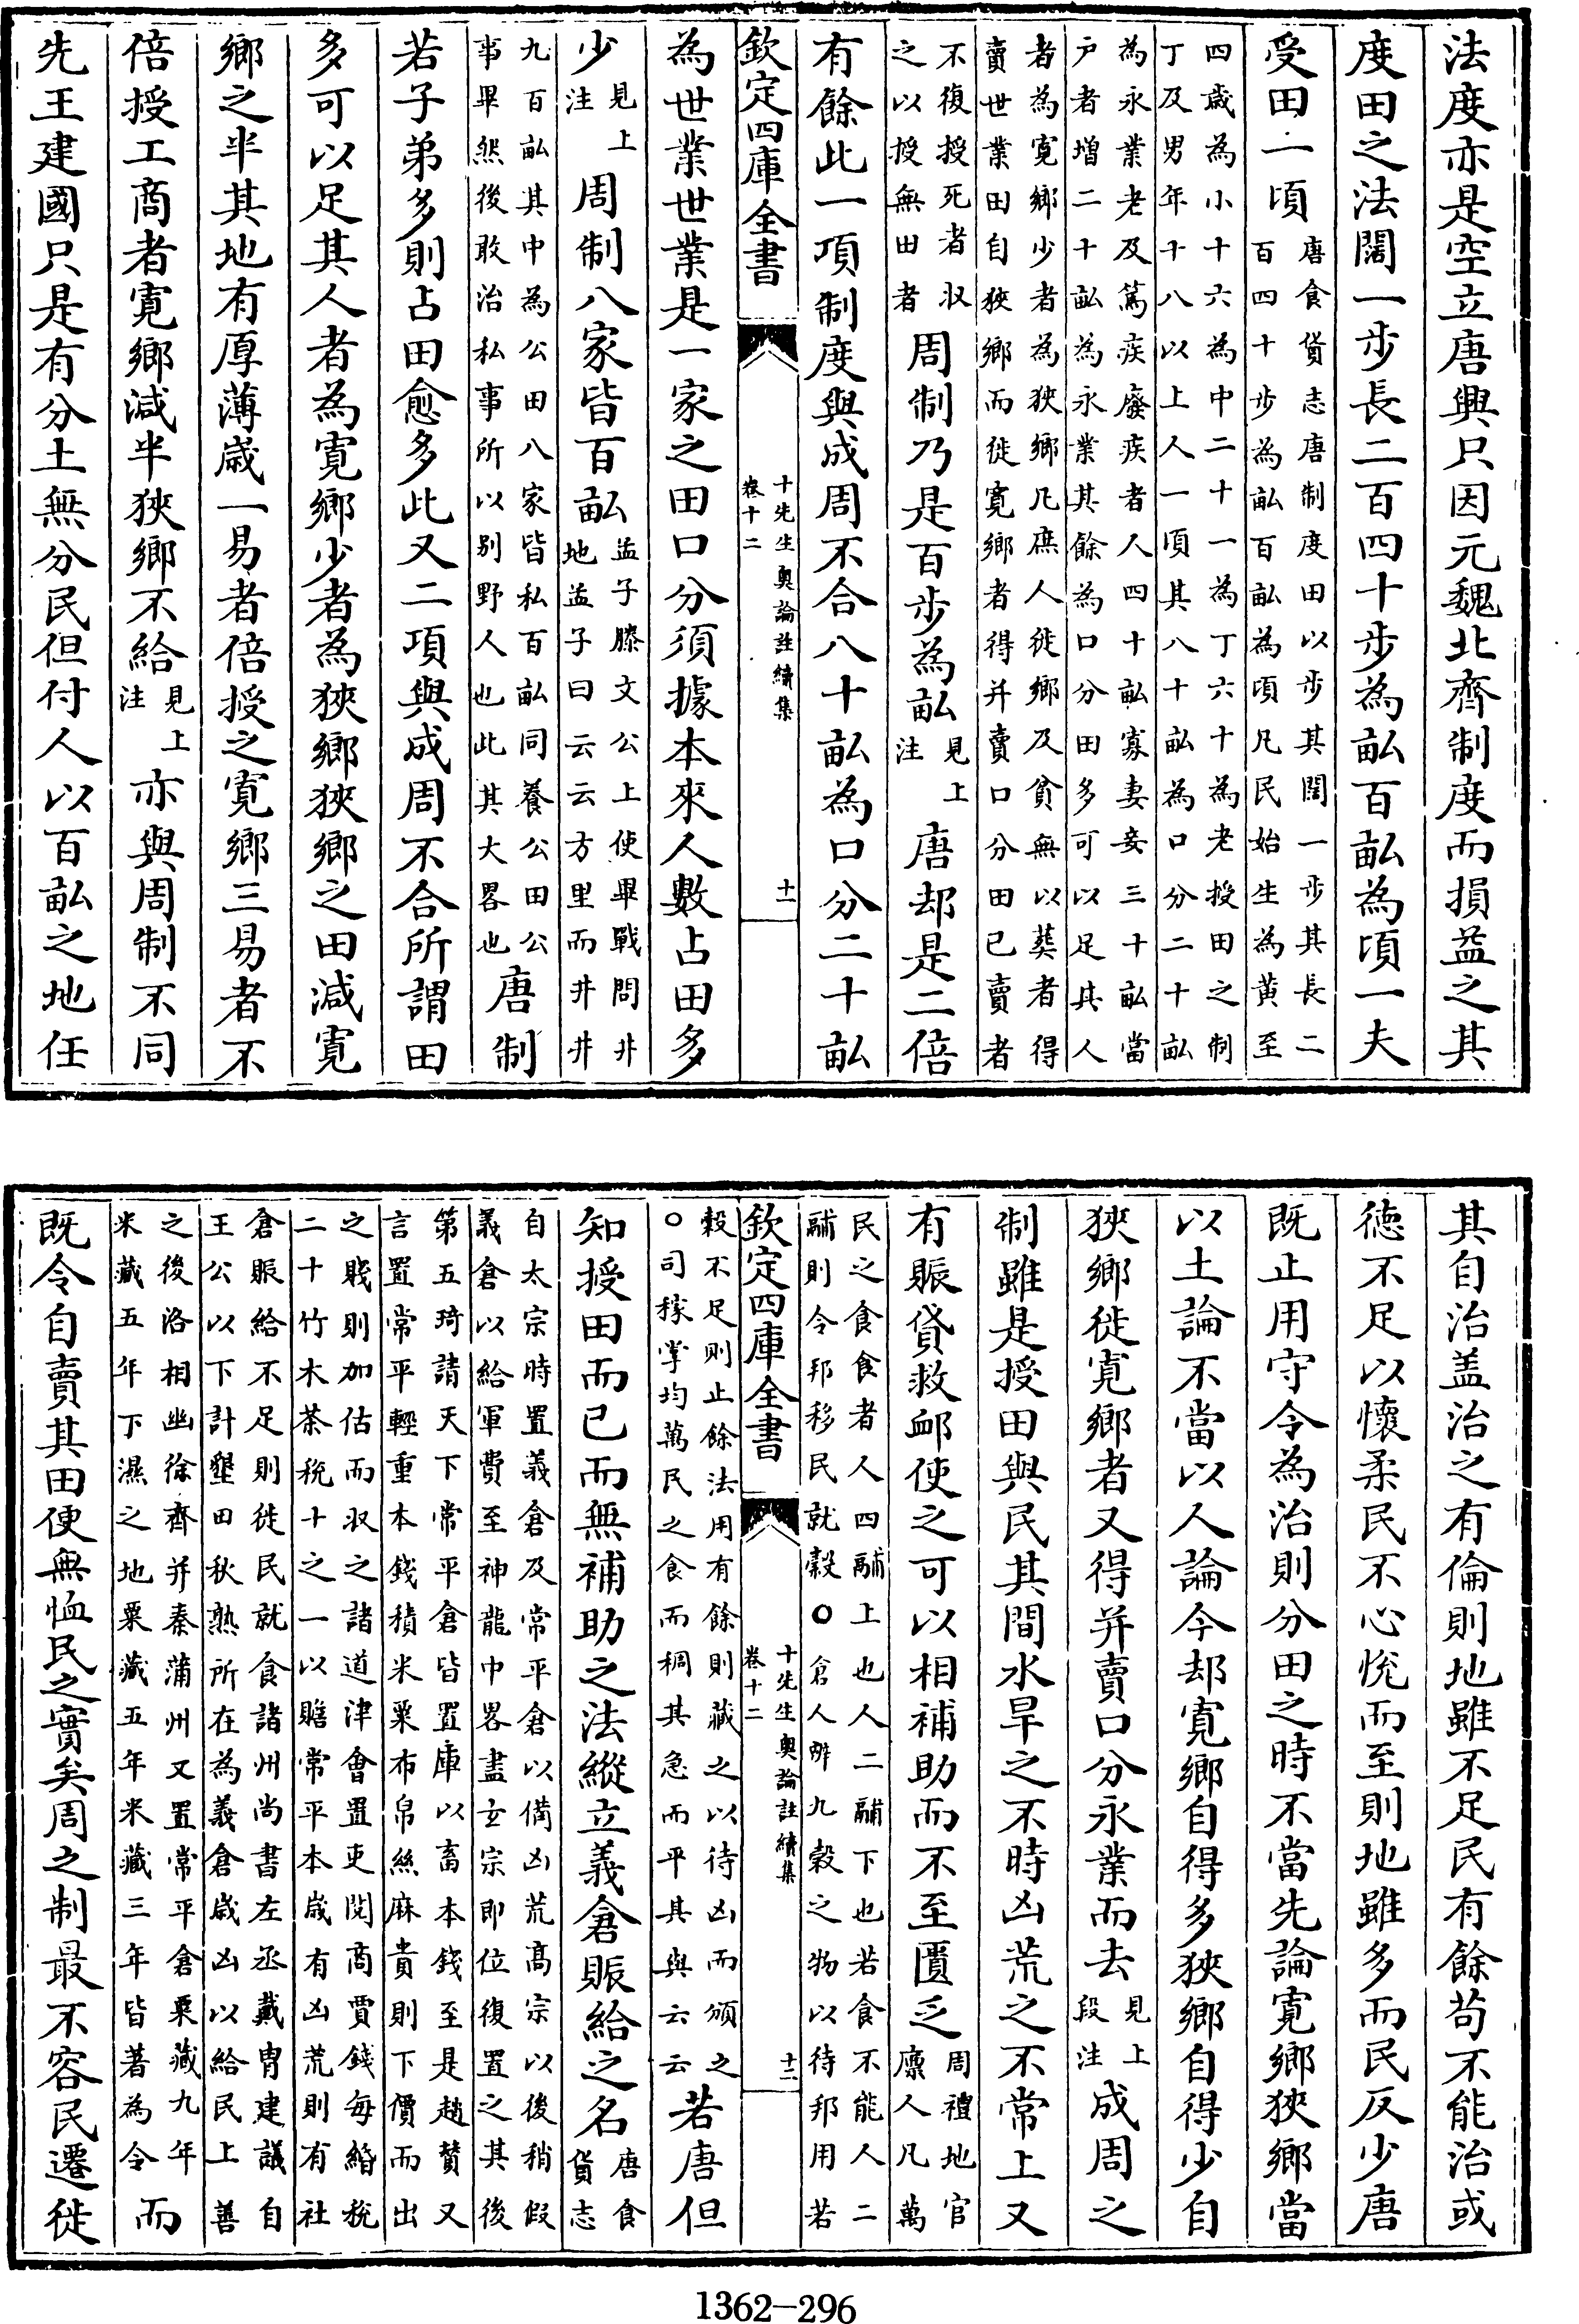 法度亦是空立唐興只因元魏北齊制度而損益之其
度田之法闊一步長二百四十步為畝百畝為頃一夫
受田一頃唐食貨志唐制度田以步其闊一步其長二
百四十步為畝百畝為頃凡民始生為黃至
四歲為小十六為中二十一為丁六十為老授田之制
丁及男年十八以上人一頃其八十畝為口分二十畝
為永業老及篤疾廢疾者人四十畝寡妻妾三十畝當
戶者增二十畝為永業其餘為口分田多可以足其人
者為寛鄉少者為狹鄉凡庶人徙鄉及貧無以葬者得
賣世業田自狹鄉而徙寛鄉者得并賣口分田已賣者
不復授死者収
之以授無田者周制乃是百步為畝見上
注唐却是二倍
有餘此一項制度與成周不合八十畝為口分二十畝
欽定四庫全書
十先生奧論註續集
卷十二
十一
為世業世業是一家之田口分須據本來人數占田多
少見上
注周制八家皆百畝孟子滕文公上使畢戰問井
地孟子曰云云方里而井井
九百畝其中為公田八家皆私百畝同養公田公
事畢然後敢治私事所以别野人也此其大畧也唐制
若子弟多則占田愈多此又二項與成周不合所謂田
多可以足其人者為寛鄉少者為狹鄉狹鄉之田減寛
鄉之半其地有厚薄歲一易者倍授之寛鄉三易者不
倍授工商者寛鄉減半狹鄉不給見上
注亦與周制不同
先王建國只是有分土無分民但付人以百畝之地任
其自治盖治之有倫則地雖不足民有餘苟不能治或
德不足以懷柔民不心悅而至則地雖多而民反少唐
既止用守令為治則分田之時不當先論寛鄉狹鄉當
以土論不當以人論今却寛鄉自得多狹鄉自得少自
狹鄉徙寛鄉者又得并賣口分永業而去見上
段注成周之
制雖是授田與民其間水旱之不時凶荒之不常上又
有賑貸救䘏使之可以相補助而不至匱乏周禮地官
廪人凡萬
民之食食者人四鬴上也人二鬴下也若食不能人二
鬴則令邦移民就穀○倉人辨九穀之物以待邦用若
欽定四庫全書
十先生奧論註續集
卷十二
十二
穀不足則止餘法用有餘則藏之以待凶而頒之
○司稼掌均萬民之食而稠其急而平其與云云若唐但
知授田而已而無補助之法縱立義倉賑給之名唐食
貨志
自太宗時置義倉及常平倉以備凶荒髙宗以後稍假
義倉以給軍費至神龍中畧盡玄宗即位復置之其後
第五琦請天下常平倉皆置庫以畜本錢至是趙贊又
言置常平輕重本錢積米粟布帛絲麻貴則下價而出
之賤則加估而収之諸道津會置吏閱商賈錢每緡稅
二十竹木茶稅十之一以贍常平本歲有凶荒則有社
倉賑給不足則徙民就食諸州尚書左丞戴冑建議自
王公以下計墾田秋熟所在為義倉歲凶以給民上善
之後洛相幽徐齊并秦蒲州又置常平倉粟藏九年
米藏五年下濕之地粟藏五年米藏三年皆著為令而
既令自賣其田便無恤民之實矣周之制最不容民遷徙
1362—296